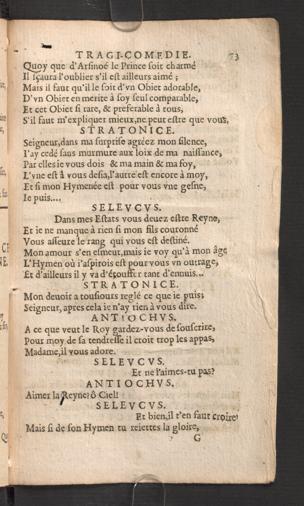 TRAGI-COMEDIE. 73
Quoy que d'Arsinoé le Prince soit charmé
Il sçaura l'oublier s'il est ailleurs aimé ;
Mais il faut qu'il le soit d'vn Obiet adorable,
D'vn Obiet en merite à soy seul comparable,
Et cet Obiet si rare, & preferable à tous,
S'il faut m'expliquer mieux, ne peut estre que vous,
STRATONICE.
Seigneur, dans ma surprise agréez mon silence,
I'ay cedé sans murmure aux loix de ma naissance,
Par elles ie vous dois & ma main & ma foy,
L'vne est à vous desia, l'autre est encore à moy,
Et si mon Hymenée est pour vous vne gesne,
Ie puis....
SELEVCVS.
Dans mes Estats vous deuez estre Reyne,
Et ie ne manque à rien si mon fils couronné
Vous asseure le rang qui vous est destiné.
Mon amour s'en esmeut, mais ie voy qu'à mon âge
L'Hymen où i'aspirois est pour vous vn outrage,
Et d'ailleurs il y va d'étouffer tant d'ennuis...
STRATONICE.
Mon deuoir a tousiours reglé ce que ie puis;
Seigneur, apres cela ie n'ay rien à vous dire.
ANTIOCHVS.
A ce que veut le Roy gardez-vous de souscrire,
Pour moy de sa tendresse il croit trop les appas,
Madame, il vous adore.
SELEVCVS.
Et ne l'aimes-tu pas?
ANTIOCHVS.
Aimer la Reyne? ô Ciel!
SELEVCVS.
Et bien, il t'en faut croire;
Mais si de son Hymen tu reiettes la gloire,
G